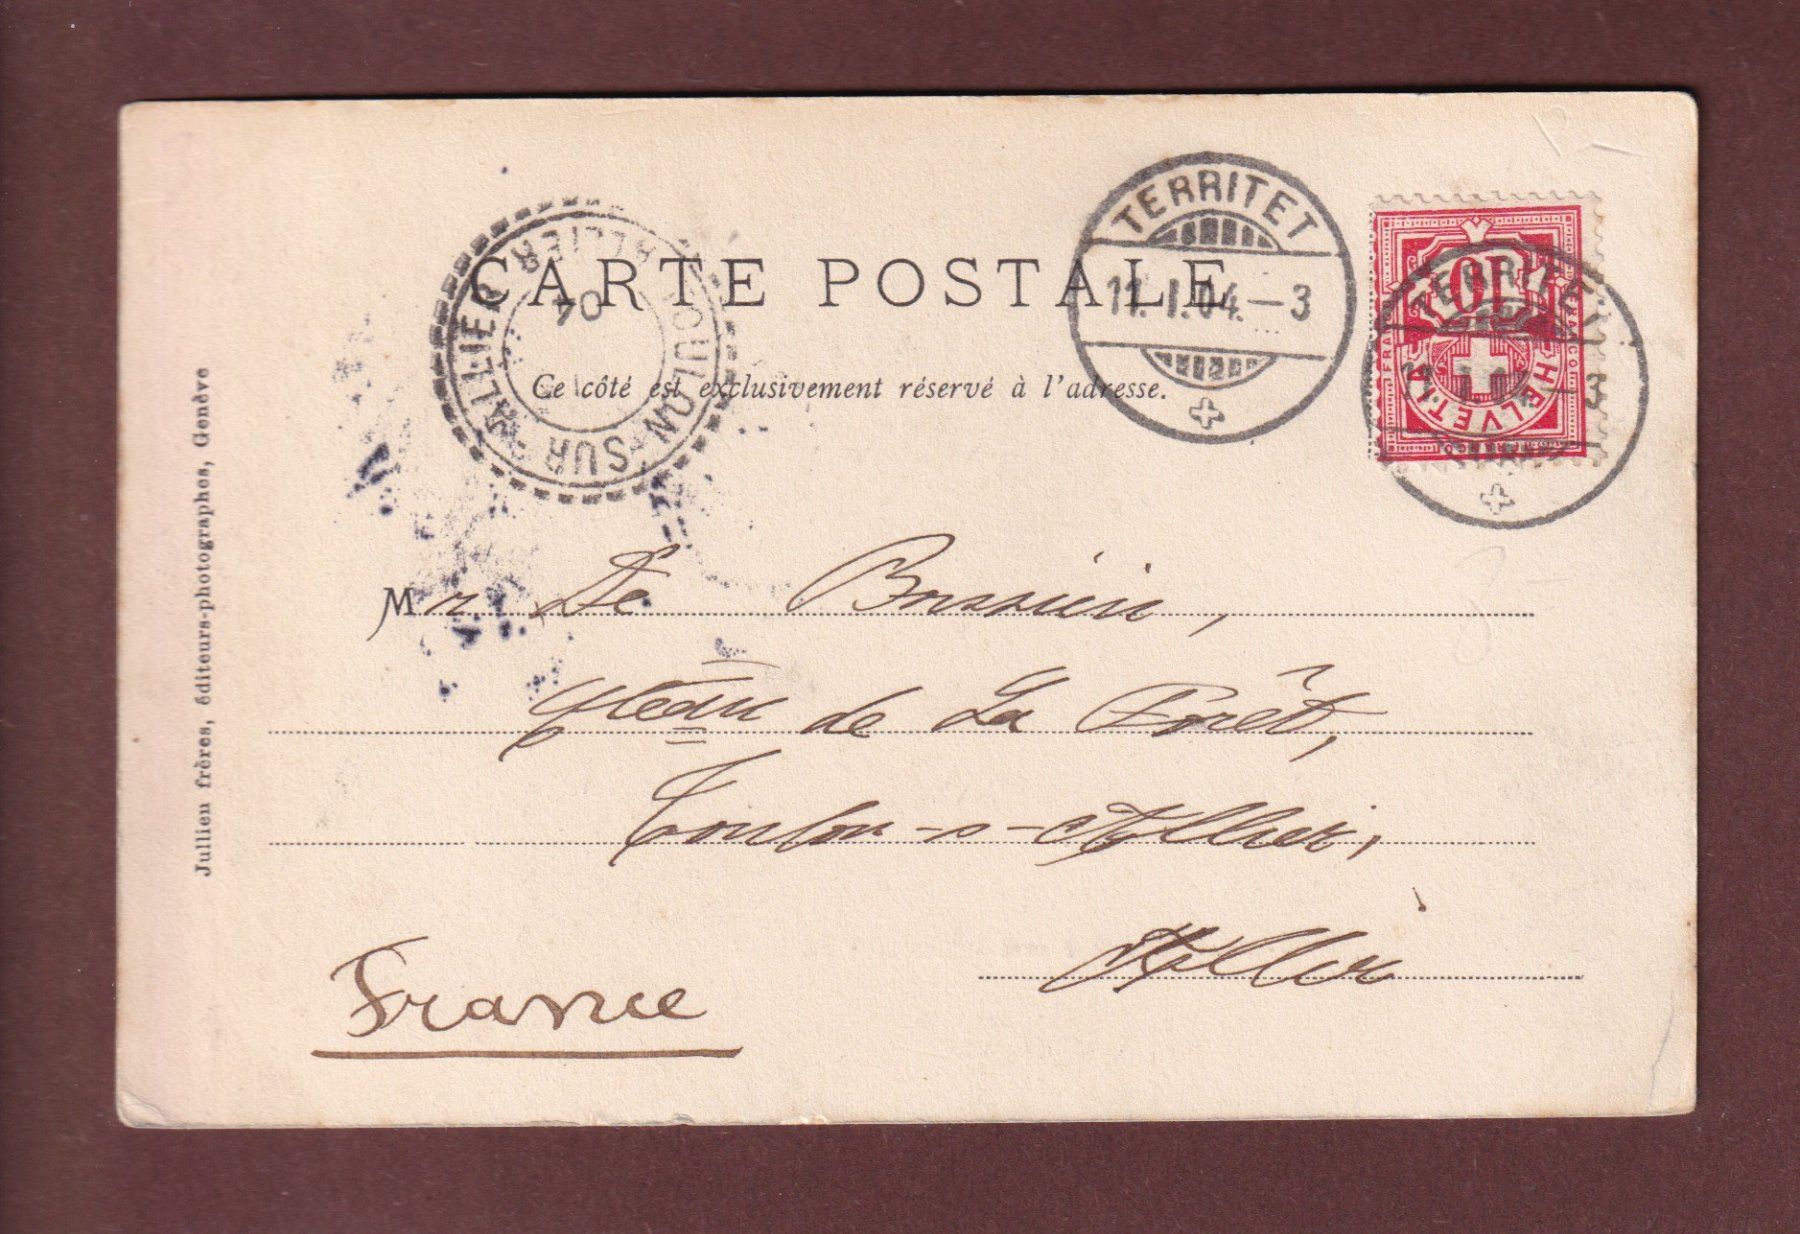 CARTE POSTALE
Ce côté est exclusivement réservé à l'adresse.
TERRITET
11. I. 04. — 3
TERRITET
— 3
10
FRANCO
HELVETIA
TOULON-SUR-ALLIER
ALLIER
04
Mr. De
Château de La Forêt,
Toulon-s-Allier,
Allier
France
Jullien frères, éditeurs-photographes, Genève